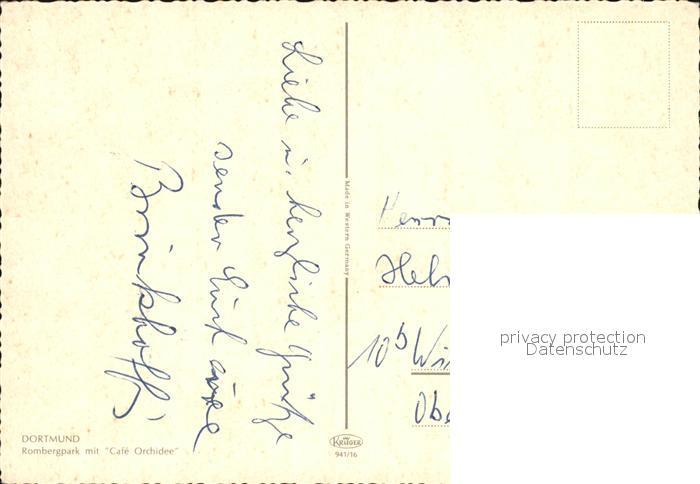 Liebe u. herzliche Grüße
senden Euch
Brinkhoffs
Made in Western Germany
Herrn
10b
privacy protection
Datenschutz
DORTMUND
Rombergpark mit "Café Orchidee"
KRÜGER
941/16